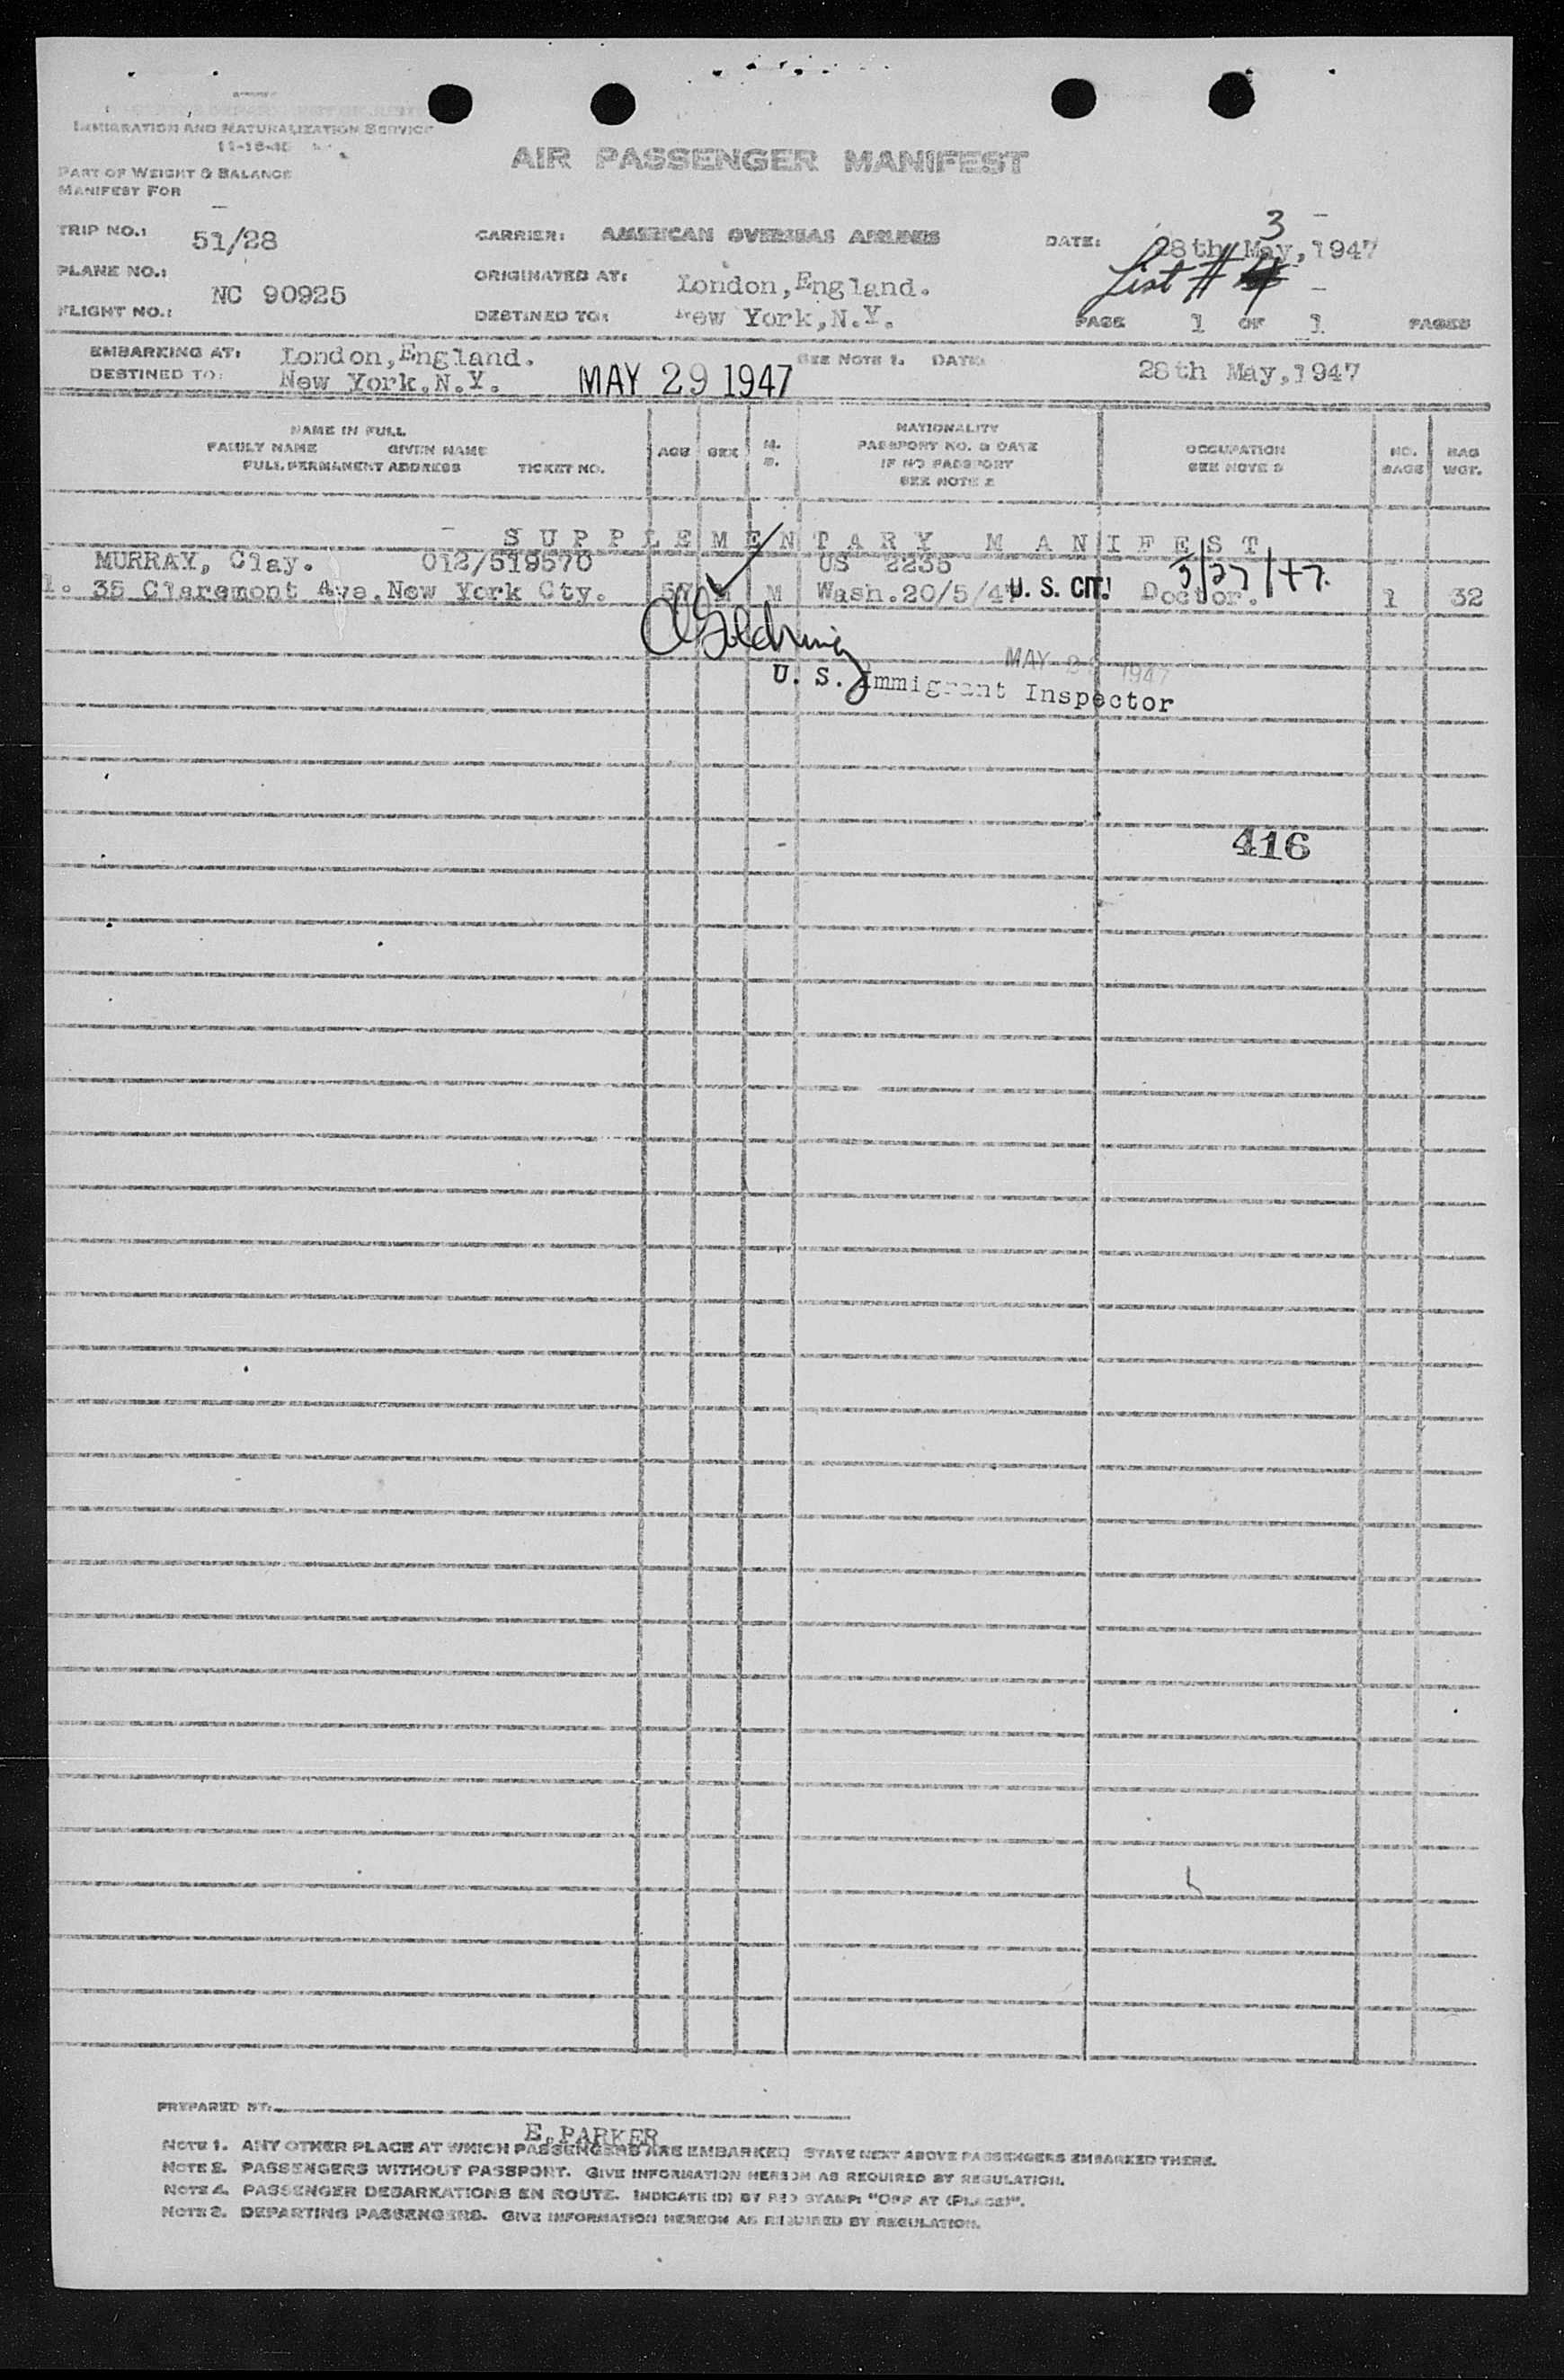 IMMIGRATION AND NATURALIZATION SERVICE
11-18-45
AIR PASSENGER MANIFEST
PART OF WEIGHT & BALANCE
MANIFEST FOR
TRIP NO.: 51/28 CARRIER: AMERICAN OVERSEAS AIRLINES DATE: 28th May, 1947
3
PLANE NO.: NC 90925 ORIGINATED AT: London, England. List #
FLIGHT NO.: DESTINED TO: New York, N.Y. PAGE 1 OF 1 PAGES
EMBARKING AT: London, England. SEE NOTE 1. DATE: 28th May, 1947
DESTINED TO: New York, N.Y. MAY 29 1947
NAME IN FULL
FAMILY NAME GIVEN NAME
FULL PERMANENT ADDRESS TICKET NO.
AGE SEX M. S.
NATIONALITY
PASSPORT NO. & DATE
IF NO PASSPORT
SEE NOTE 2
OCCUPATION
SEE NOTE 3
NO. BAGS
BAG WGT.
SUPPLEMENTARY MANIFEST
MURRAY, Clay. 012/519570 US 2235 5/27/47.
1. 35 Claremont Ave. New York Cty. 57 M M Wash. 20/5/4 U. S. CIT. Doctor. 1 32
MAY 29 1947
U. S. Immigrant Inspector
416
PREPARED BY:
E. PARKER
NOTE 1. ANY OTHER PLACE AT WHICH PASSENGERS ARE EMBARKED STATE NEXT ABOVE PASSENGERS EMBARKED THERE.
NOTE 2. PASSENGERS WITHOUT PASSPORT. GIVE INFORMATION HEREON AS REQUIRED BY REGULATION.
NOTE 4. PASSENGER DEBARKATIONS EN ROUTE. INDICATE (D) BY RED STAMP: "OFF AT (PLACE)".
NOTE 3. DEPARTING PASSENGERS. GIVE INFORMATION HEREON AS REQUIRED BY REGULATION.